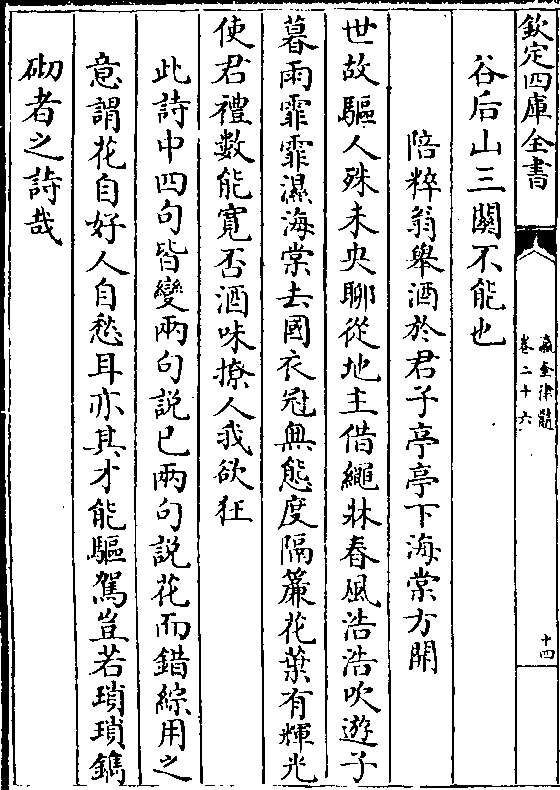 欽定四庫全書
瀛奎律髓
卷二十六
十四
谷后山三關不能也
陪粹翁舉酒於君子亭亭下海棠方開
世故驅人殊未央聊從地主借繩牀春風浩浩吹遊子
暮雨霏霏濕海棠去國衣冠無態度隔簾花葉有輝光
使君禮數能寬否酒味撩人我欲狂
此詩中四句皆變兩句說已兩句說花而錯綜用之
意謂花自好人自愁耳亦其才能驅駕豈若瑣瑣鐫
砌者之詩哉